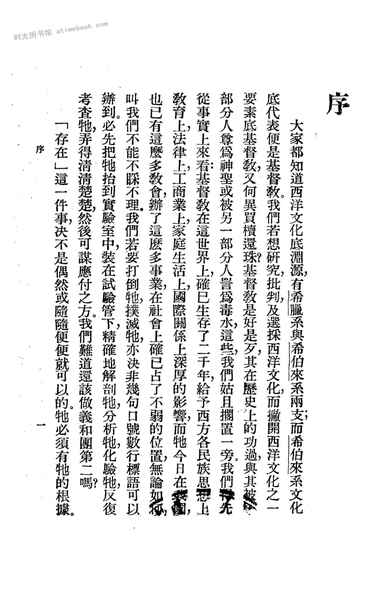 时光图书馆 alimebook.com
序
大家都知道西洋文化底淵源,有希臘系與希伯來系兩支;而希伯來系文化
底代表便是基督教。我們若想研究批判及選採西洋文化,而撇開西洋文化之一
要素底基督教,又何異買櫝還珠?基督教是好是歹,其在歷史上的功過,與其被
部分人尊爲神聖或被另一部分人詈爲毒水,這些我們姑且擱置一旁。我們先
從事實上來看:基督教在這世界上,確已生存了二千年,給予西方各民族思想上,
教育上,法律上,工商業上,家庭生活上,國際關係上深厚的影響;而牠今日在
也已有這麼多教會,辦了這麼多事業,在社會上確已占了不弱的位置。無論如何,
叫我們不能不睬不理。我們若要打倒牠,撲滅牠,亦決非幾句口號,數行標語可以
辦到。必先把牠抬到實驗室中,裝在試驗管下,精確地解剖牠,分析牠,化驗牠,反復
考查牠,弄得清清楚楚,然後可謀應付之方。我們難道還該做義和團第二嗎?
「存在」這一件事,決不是偶然或隨隨便便就可以的,牠必須有牠的根據。
序
一